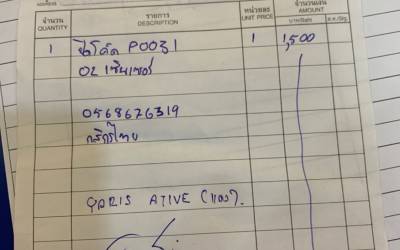 จำนวน QUANTITY รายการ DESCRIPTION หน่วยละ UNIT PRICE จำนวนเงิน AMOUNT
บาท/Baht ส.ต./Stg.
1 โค้ด P0031 1 1,500
O2 เซ็นเซอร์
0568676319
กสิกรไทย
YARIS ATIVE (แดง).